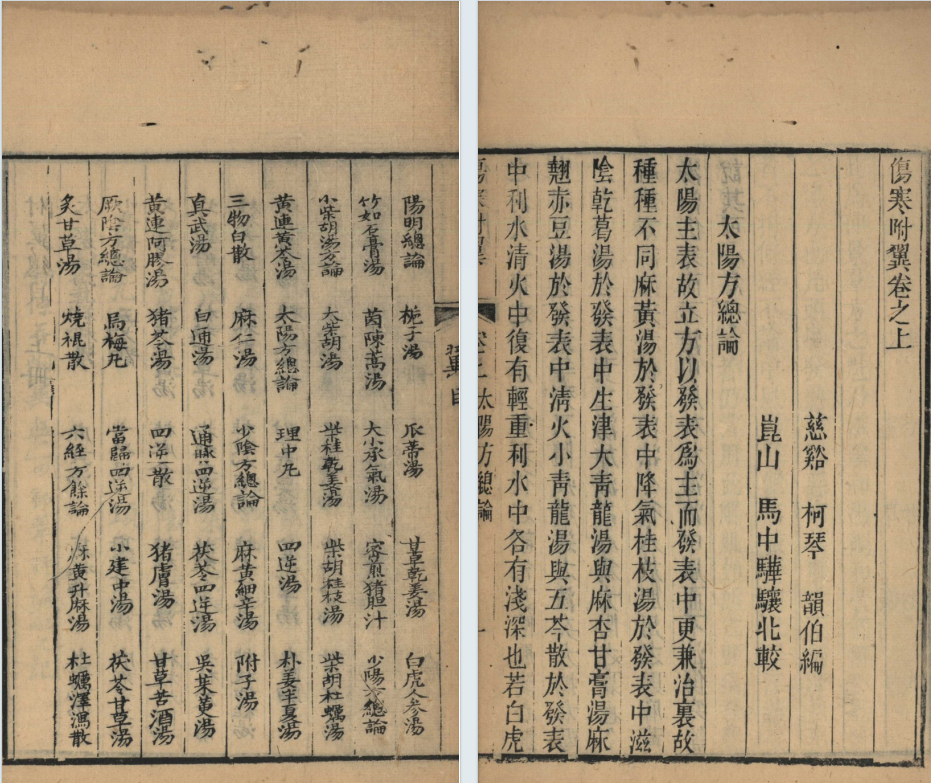 傷寒附翼卷之上
慈谿 柯琴 韻伯編
崑山 馬中驊驤北較
太陽方總論
太陽主表故立方以發表爲主而發表中更兼治裏故
種種不同麻黃湯於發表中降氣桂枝湯於發表中滋
陰乾葛湯於發表中生津大青龍湯與麻杏甘膏湯麻
翹赤豆湯於發表中淸火小靑龍湯與五苓散於發表
中利水清火中復有輕重利水中各有淺深也若白虎
太陽方總論 一
翼 目
陽明總論 梔子湯 瓜蒂湯 甘草乾姜湯 白虎人參湯
竹如石膏湯 茵陳蒿湯 大小承氣湯 蜜煎猪胆汁 少陽方總論
小柴胡湯方論 大柴胡湯 柴桂乾姜湯 柴胡桂枝湯 柴胡牡蠣湯
黃連黃芩湯 太陽方總論 理中丸 四逆湯 朴姜半夏湯
三物白散 麻仁湯 少陰方總論 麻黃細辛湯 附子湯
真武湯 白通湯 通脉四逆湯 茯苓四逆湯 吳茱萸湯
黃連阿膠湯 猪苓湯 四逆散 猪膚湯 甘草苦酒湯
厥陰方總論 烏梅丸 當歸四逆湯 小建中湯 茯苓甘草湯
炙甘草湯 燒裩散 六經方餘論 麻黃升麻湯 牡蠣澤瀉散